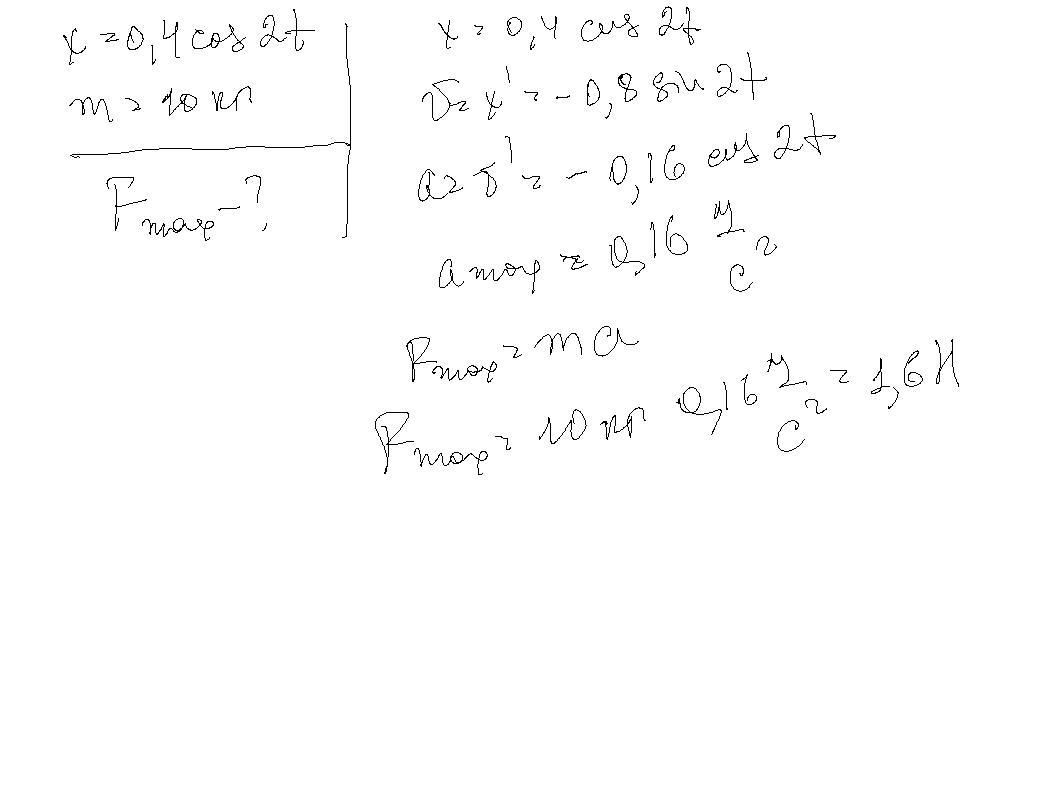 x = 0,4 cos 2t
m = 10 кг
Fmax - ?
x = 0,4 cos 2t
v = x' = - 0,8 sin 2t
a = v' = - 0,16 cos 2t
a max = 0,16 м/с²
Fmax = ma
Fmax = 10 кг 0,16 м/с² = 1,6 Н